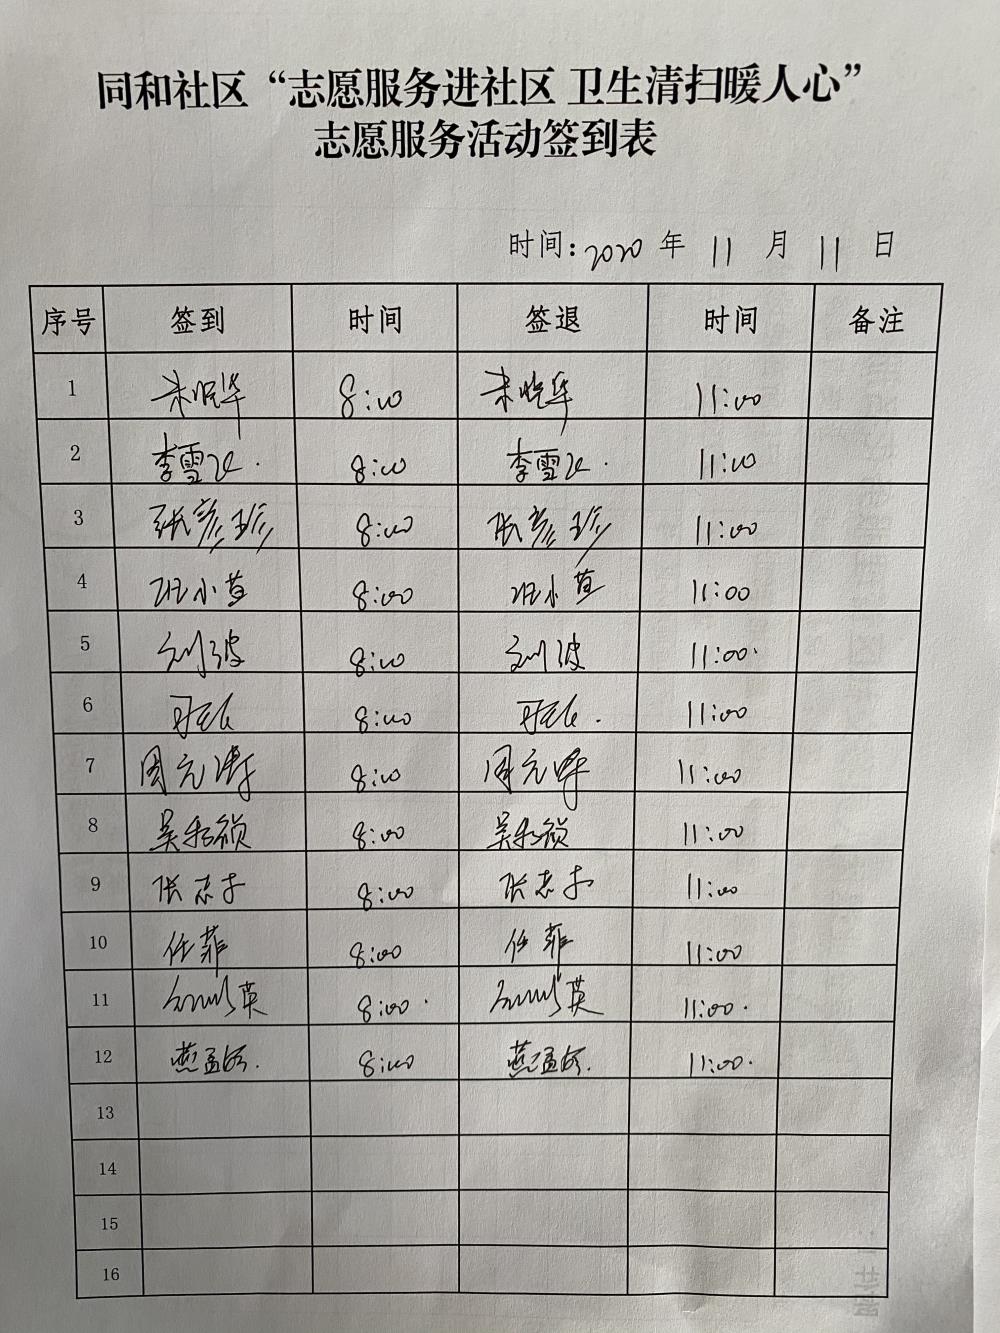 同和社区“志愿服务进社区 卫生清扫暖人心”
志愿服务活动签到表
时间:2020 年 11 月 11 日
序号 签到 时间 签退 时间 备注
1 8:00 11:00
2 李雪 8:00 李雪 11:00
3 张彦珍 8:00 张彦珍 11:00
4 小 8:00 小 11:00
5 刘波 8:00 刘波 11:00
6 8:00 11:00
7 周元 8:00 周元 11:00
8 吴 8:00 吴 11:00
9 张志 8:00 张志 11:00
10 任菲 8:00 任菲 11:00
11 英 8:00 英 11:00
12 燕孟 8:00 燕孟 11:00
13
14
15
16